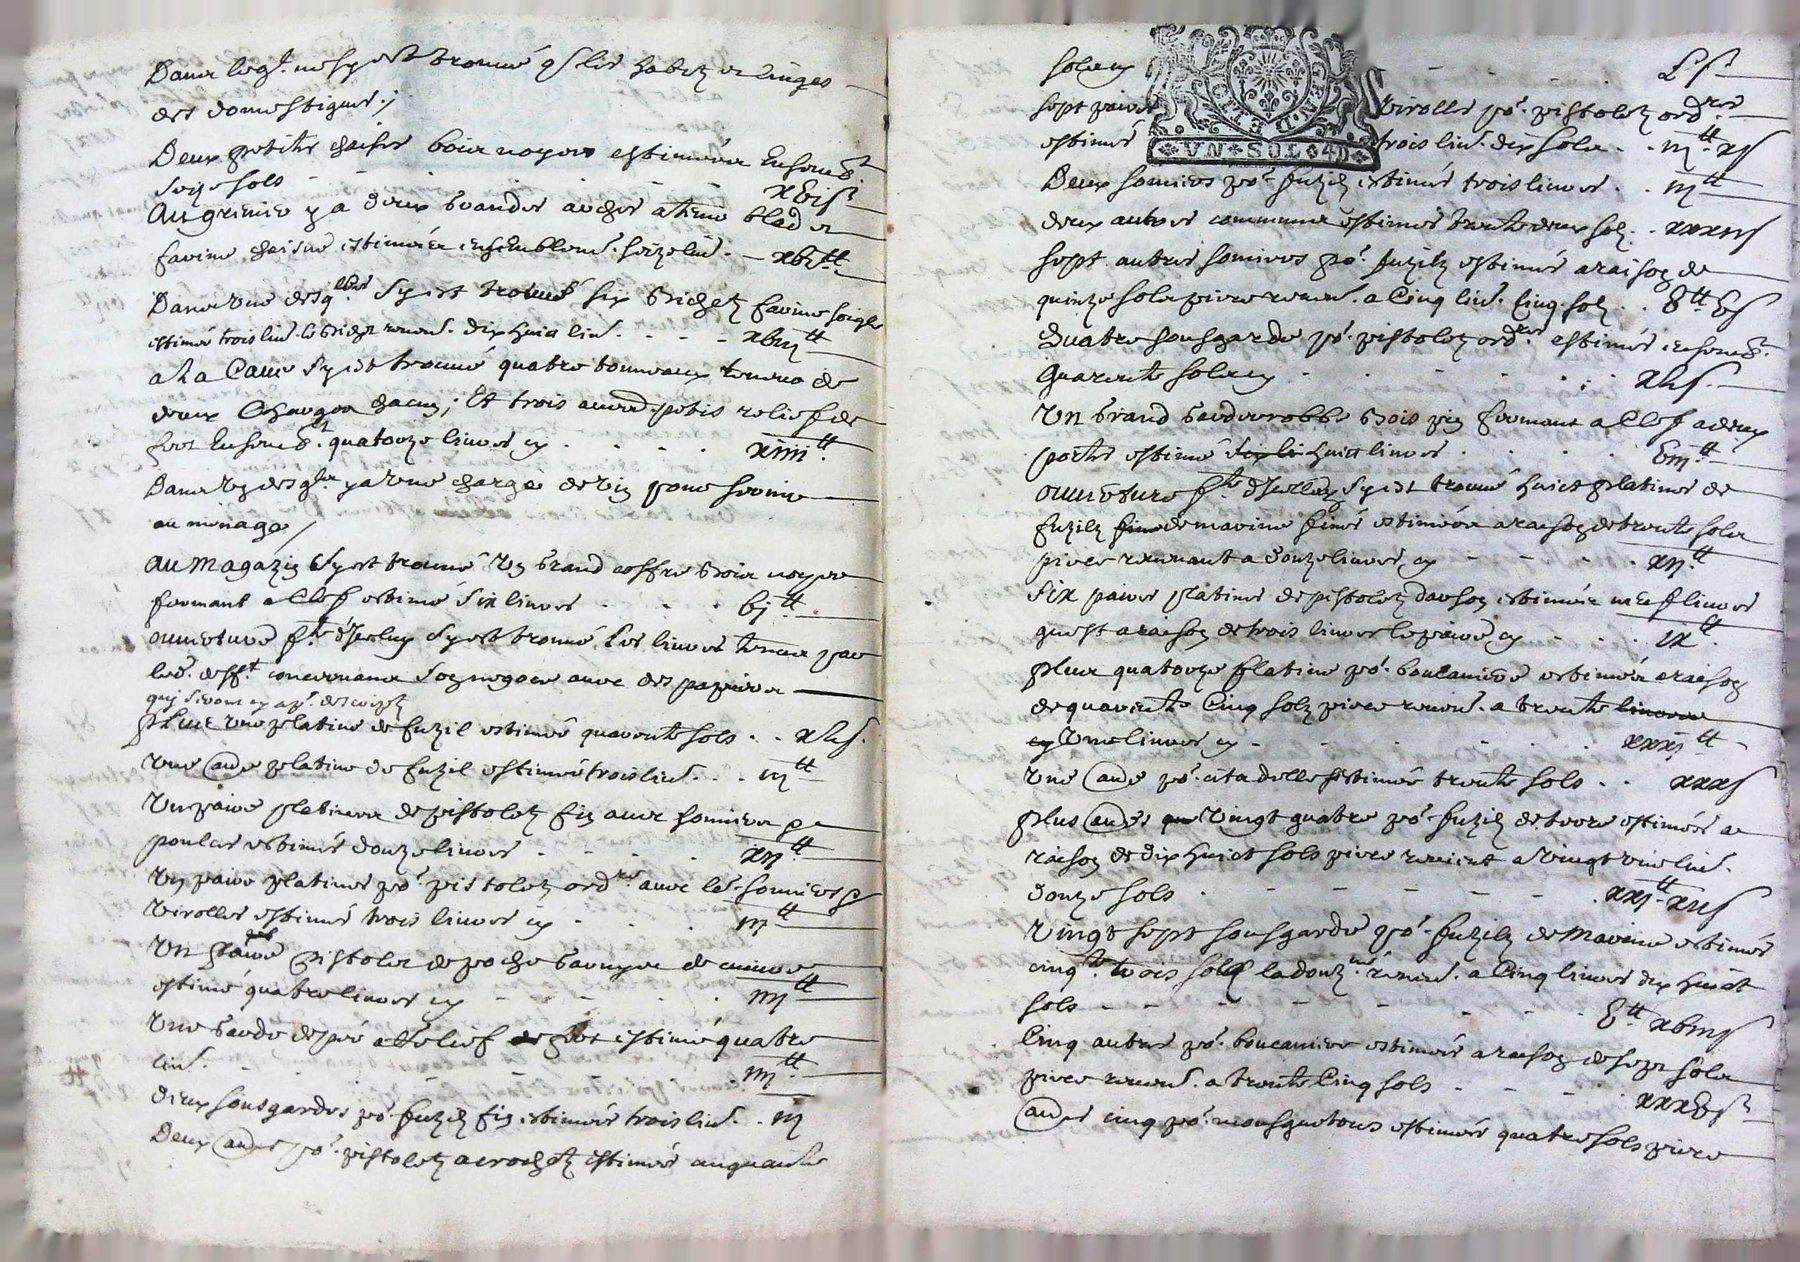 Dans leql. ne sy est trouvé q les habitz et linges
des domestiques ;
Deux petites chaises bois noyer estimées ensemb.
seize sols xvi s
Au grenier y a deux grandes arches a tenir bled et
farine estimées ensemblem. seize liv. xvi lt
Dans une desqlles sy est trouvé six bichetz farine soigle
estimé trois liv. le bichet revent. dix huict liv. xviii lt
a La Cave sy est trouvé quatre tonneaux tenens de
deux chacun ; Et trois petis relief de
fert ensemb. quatorze livres cy xiiii lt
Dans un desqls y a une charge de vin pour servir
au ménage /
Au magazin sy est trouvé un grand coffre bois noyer
fermant a Clef estimé six livres vj lt
ouverture fte d'Iceluy sy est trouvé Les livres tenus par
led. defft concernans son negoce avec des papiers
quj seront cy ap.
plus une platine de fuzil estimée quarente sols xl s.
Une aude platine de fuzil estimée trois liv. iij lt
Un paire platines de pistoletz fin avec sonniers p
poulcs estimés douze livres xij lt
Un paire platines po. pistoletz ordres avec les sonniers p
virolles estimés trois livres cy iij lt
Un paire pistolet de poche garnys de cuivre
estimé quatre livres cy iiij lt
Une garde despée a relief de fer estimé quatre
liv. iiij lt
deux sousgardes po. fuzilz fin estimées trois liv. iij
Deux audes po. pistoletz a crochetz estimés cinquante
sols cy L s
sept paires virolles po. pistoletz ordres
estimés trois liv. dix sols iij lt x s
Deux sonniers po. fuzilz estimés trois livres iij lt
deux autres communs estimés trente deux solz xxxij s
sept autres sonniers po. fuzilz estimés a raison de
quinze sols piece revent. a Cinq liv. Cinq solz v lt v s
Quatre sousgarde po. pistoletz ordres estimés ensemb.
quarente sols cy xl s.
Un grand garderobbe bois pin fermant a Clef a deux
portes estimé six li huict livres viij lt
ouverture fte d'Icelluy sy est trouvé huict platines de
fuzilz fine de marine finis estimées a raison de trente sols
piece revenant a douze livres cy xij lt
Six paires platines de pistoletz estimées neuf livres
quest a raison de trois livres le paire cy ix lt
plus quatorze platine po. boucaniers estimées a raison
de quarente Cinq solz piece revent. a trente livres
cy Une livres cy xxxj lt
Une aude po. citadelle estimée trente sols xxx s
plus audes que vingt quatre po. fuzilz de terre estimées a
raison de dix huict sols piece revient a vingt une liv.
douze sols xxj lt xij s
Vingt sept sousgarde po. fuzilz de Marine estimés
cinqte trois solz la douzne revent. a Cinq livres dix huict
sols v lt xviij s
Cinq autres po. boucaniers estimés a raison de sept sols
piece revent. a trente Cinq sols xxxv s
audes cinq po. mousquetons estimés quatre sols piece
GEN. D.
VN SOL 4D